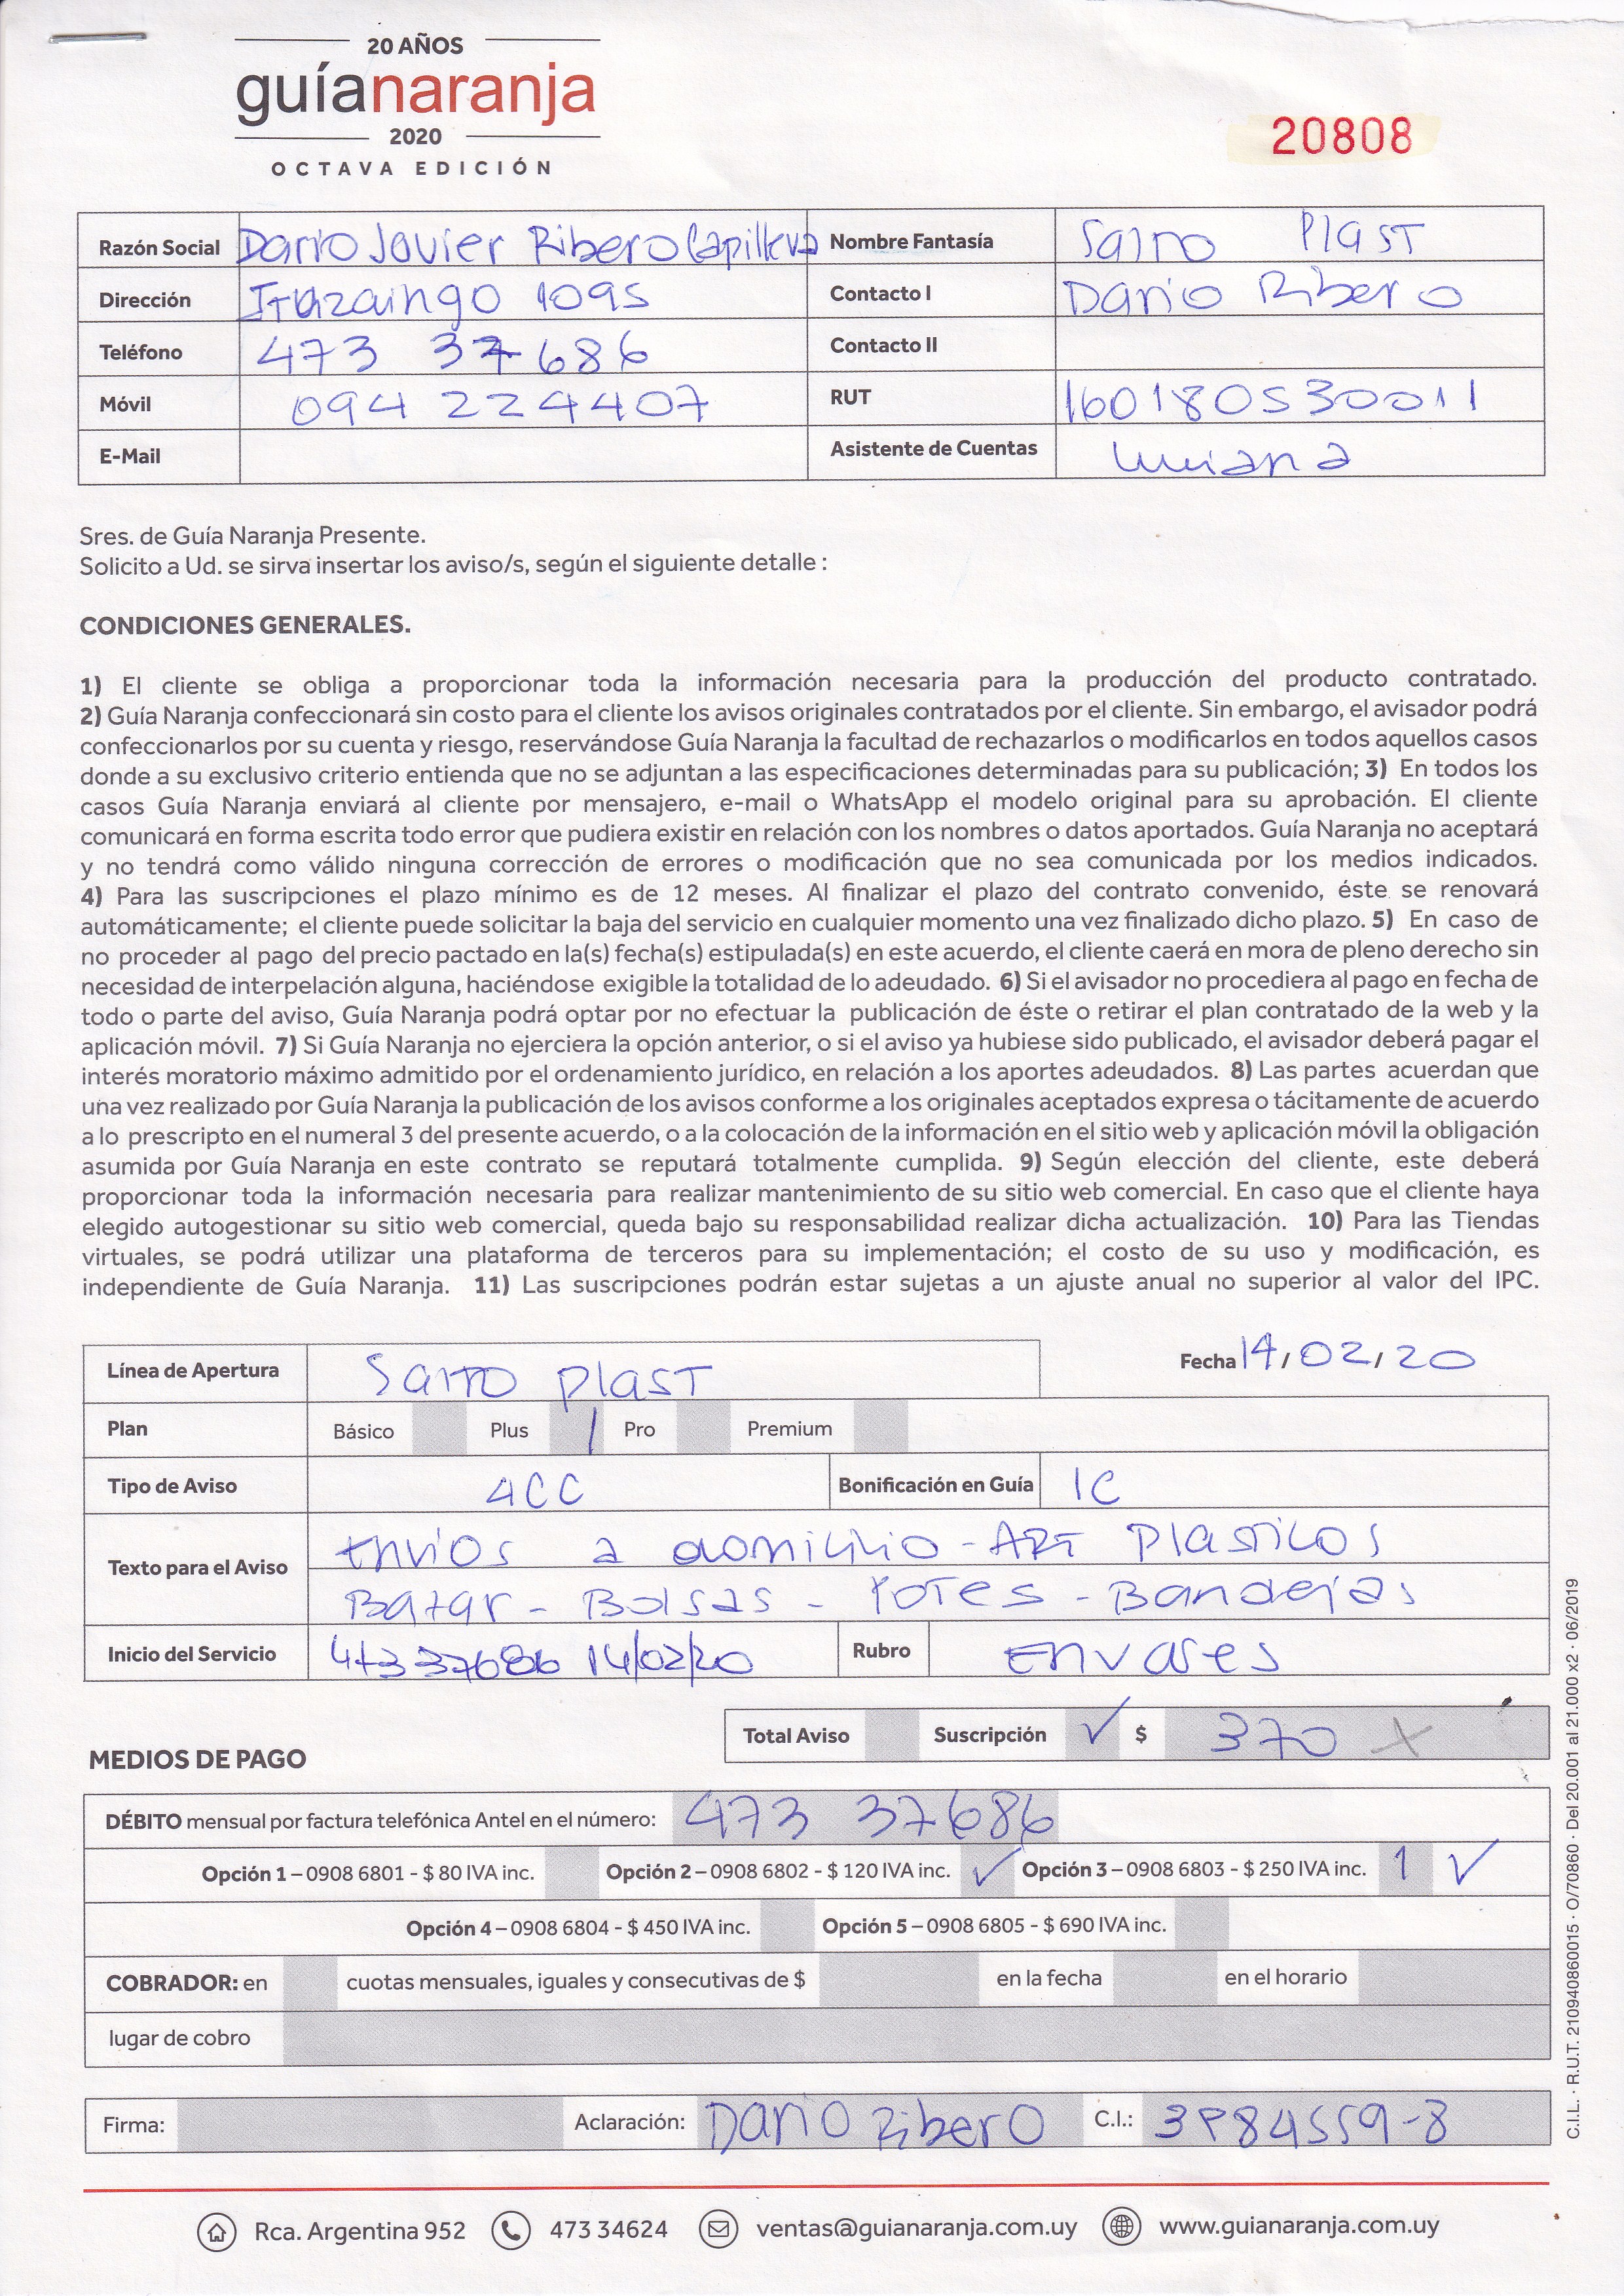 20 AÑOS
guíanaranja
2020
OCTAVA EDICIÓN
20808
Razón Social Dario Javier Ribero Nombre Fantasía Salto Plast
Dirección Ituzaingo 1095 Contacto I Dario Ribero
Teléfono 473 37686 Contacto II
Móvil 094 224407 RUT 160180530011
E-Mail Asistente de Cuentas
Sres. de Guía Naranja Presente.
Solicito a Ud. se sirva insertar los aviso/s, según el siguiente detalle :
CONDICIONES GENERALES.
1) El cliente se obliga a proporcionar toda la información necesaria para la producción del producto contratado.
2) Guía Naranja confeccionará sin costo para el cliente los avisos originales contratados por el cliente. Sin embargo, el avisador podrá
confeccionarlos por su cuenta y riesgo, reservándose Guía Naranja la facultad de rechazarlos o modificarlos en todos aquellos casos
donde a su exclusivo criterio entienda que no se adjuntan a las especificaciones determinadas para su publicación; 3) En todos los
casos Guía Naranja enviará al cliente por mensajero, e-mail o WhatsApp el modelo original para su aprobación. El cliente
comunicará en forma escrita todo error que pudiera existir en relación con los nombres o datos aportados. Guía Naranja no aceptará
y no tendrá como válido ninguna corrección de errores o modificación que no sea comunicada por los medios indicados.
4) Para las suscripciones el plazo mínimo es de 12 meses. Al finalizar el plazo del contrato convenido, éste se renovará
automáticamente; el cliente puede solicitar la baja del servicio en cualquier momento una vez finalizado dicho plazo. 5) En caso de
no proceder al pago del precio pactado en la(s) fecha(s) estipulada(s) en este acuerdo, el cliente caerá en mora de pleno derecho sin
necesidad de interpelación alguna, haciéndose exigible la totalidad de lo adeudado. 6) Si el avisador no procediera al pago en fecha de
todo o parte del aviso, Guía Naranja podrá optar por no efectuar la publicación de éste o retirar el plan contratado de la web y la
aplicación móvil. 7) Si Guía Naranja no ejerciera la opción anterior, o si el aviso ya hubiese sido publicado, el avisador deberá pagar el
interés moratorio máximo admitido por el ordenamiento jurídico, en relación a los aportes adeudados. 8) Las partes acuerdan que
una vez realizado por Guía Naranja la publicación de los avisos conforme a los originales aceptados expresa o tácitamente de acuerdo
a lo prescripto en el numeral 3 del presente acuerdo, o a la colocación de la información en el sitio web y aplicación móvil la obligación
asumida por Guía Naranja en este contrato se reputará totalmente cumplida. 9) Según elección del cliente, este deberá
proporcionar toda la información necesaria para realizar mantenimiento de su sitio web comercial. En caso que el cliente haya
elegido autogestionar su sitio web comercial, queda bajo su responsabilidad realizar dicha actualización. 10) Para las Tiendas
virtuales, se podrá utilizar una plataforma de terceros para su implementación; el costo de su uso y modificación, es
independiente de Guía Naranja. 11) Las suscripciones podrán estar sujetas a un ajuste anual no superior al valor del IPC.
Línea de Apertura Salto Plast Fecha 14/02/20
Plan Básico Plus / Pro Premium
Tipo de Aviso 4CC Bonificación en Guía 1C
Texto para el Aviso Envios a domicilio - ART Plasticos
Bazar - Bolsas - Potes - Bandejas
Inicio del Servicio 47337686 14/02/20 Rubro Envases
Total Aviso Suscripción ✓ $ 370 X
MEDIOS DE PAGO
DÉBITO mensual por factura telefónica Antel en el número: 473 37686
Opción 1 – 0908 6801 - $ 80 IVA inc. Opción 2 – 0908 6802 - $ 120 IVA inc. ✓ Opción 3 – 0908 6803 - $ 250 IVA inc. 1 ✓
Opción 4 – 0908 6804 - $ 450 IVA inc. Opción 5 – 0908 6805 - $ 690 IVA inc.
COBRADOR: en cuotas mensuales, iguales y consecutivas de $ en la fecha en el horario
lugar de cobro
Firma: Aclaración: Dario Ribero C.I.:
Rca. Argentina 952 473 34624 ventas@guianaranja.com.uy www.guianaranja.com.uy
C.I.L. · R.U.T. 210940860015 · O/70860 · Del 20.001 al 21.000 x2 · 06/2019